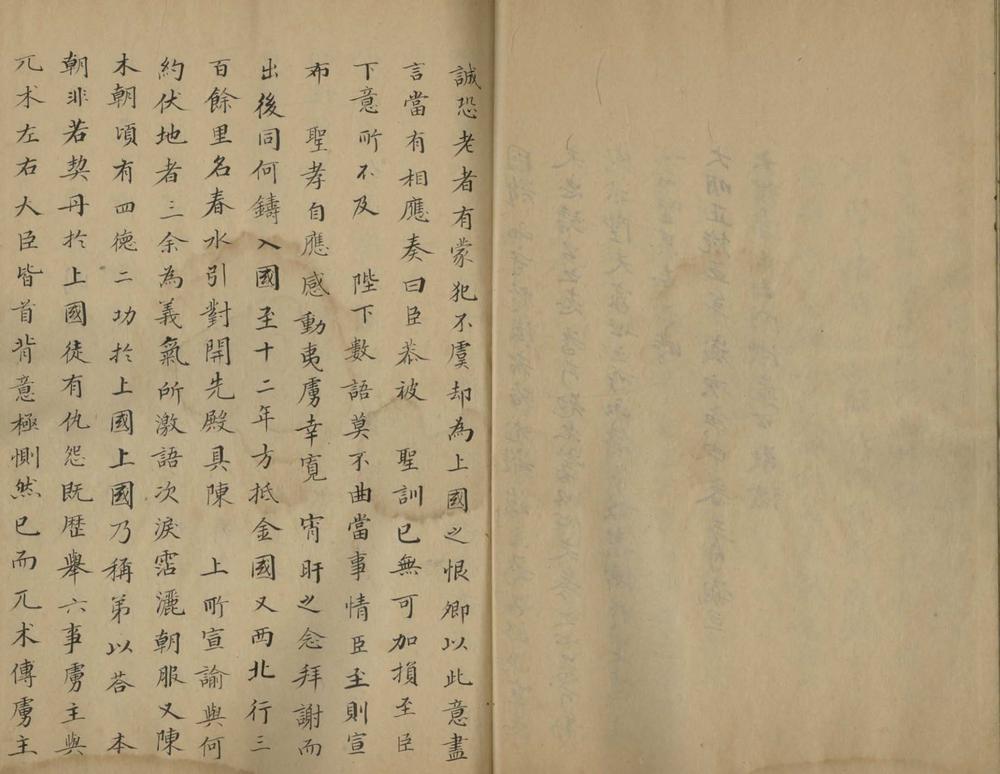 誠恐老者有蒙犯不虞却為上國之恨卿以此意盡
言當有相應奏曰臣恭被　聖訓已無可加損至臣
下意所不及　陛下數語莫不曲當事情臣至則宣
布　聖孝自應感動夷虜幸寬　宵旰之念拜謝而
出後同何鑄入國至十二年方抵金國又西北行三
百餘里名春水引對開先殿具陳　上所宣諭與何
約伏地者三余為義氣所激語次淚霑灑朝服又陳
本朝頃有四德二功於上國上國乃稱第以荅　本
朝非若契丹於上國徒有仇怨既歷舉六事虜主與
兀朮左右大臣皆首肯意極惻然已而兀朮傳虜主